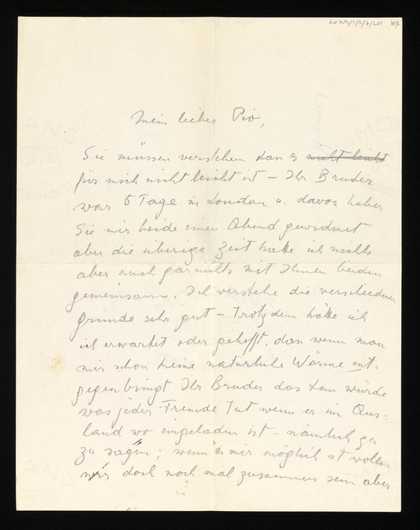 Mein lieber Pio,
Sie müssen verstehen dass es nicht leicht
für mich nicht leicht ist – Ihr Bruder
war 6 Tage in London u. davon haben
Sie mir beide einen Abend gewidmet
aber die übrige Zeit hatte ich nichts
aber auch gar nichts mit Ihnen beiden
gemeinsam. Ich verstehe die verschiedenen
Gründe sehr gut – Trotzdem hätte ich
ich erwartet oder gehofft, dass wenn man
mir schon keine natürliche Wärme ent-
gegenbringt Ihr Bruder das tun würde
was jeder Fremde tut wenn er im Aus-
land wo eingeladen ist – nämlich zu
zu sagen; wenn es mir möglich ist wollen
wir doch noch mal zusammen sein aber